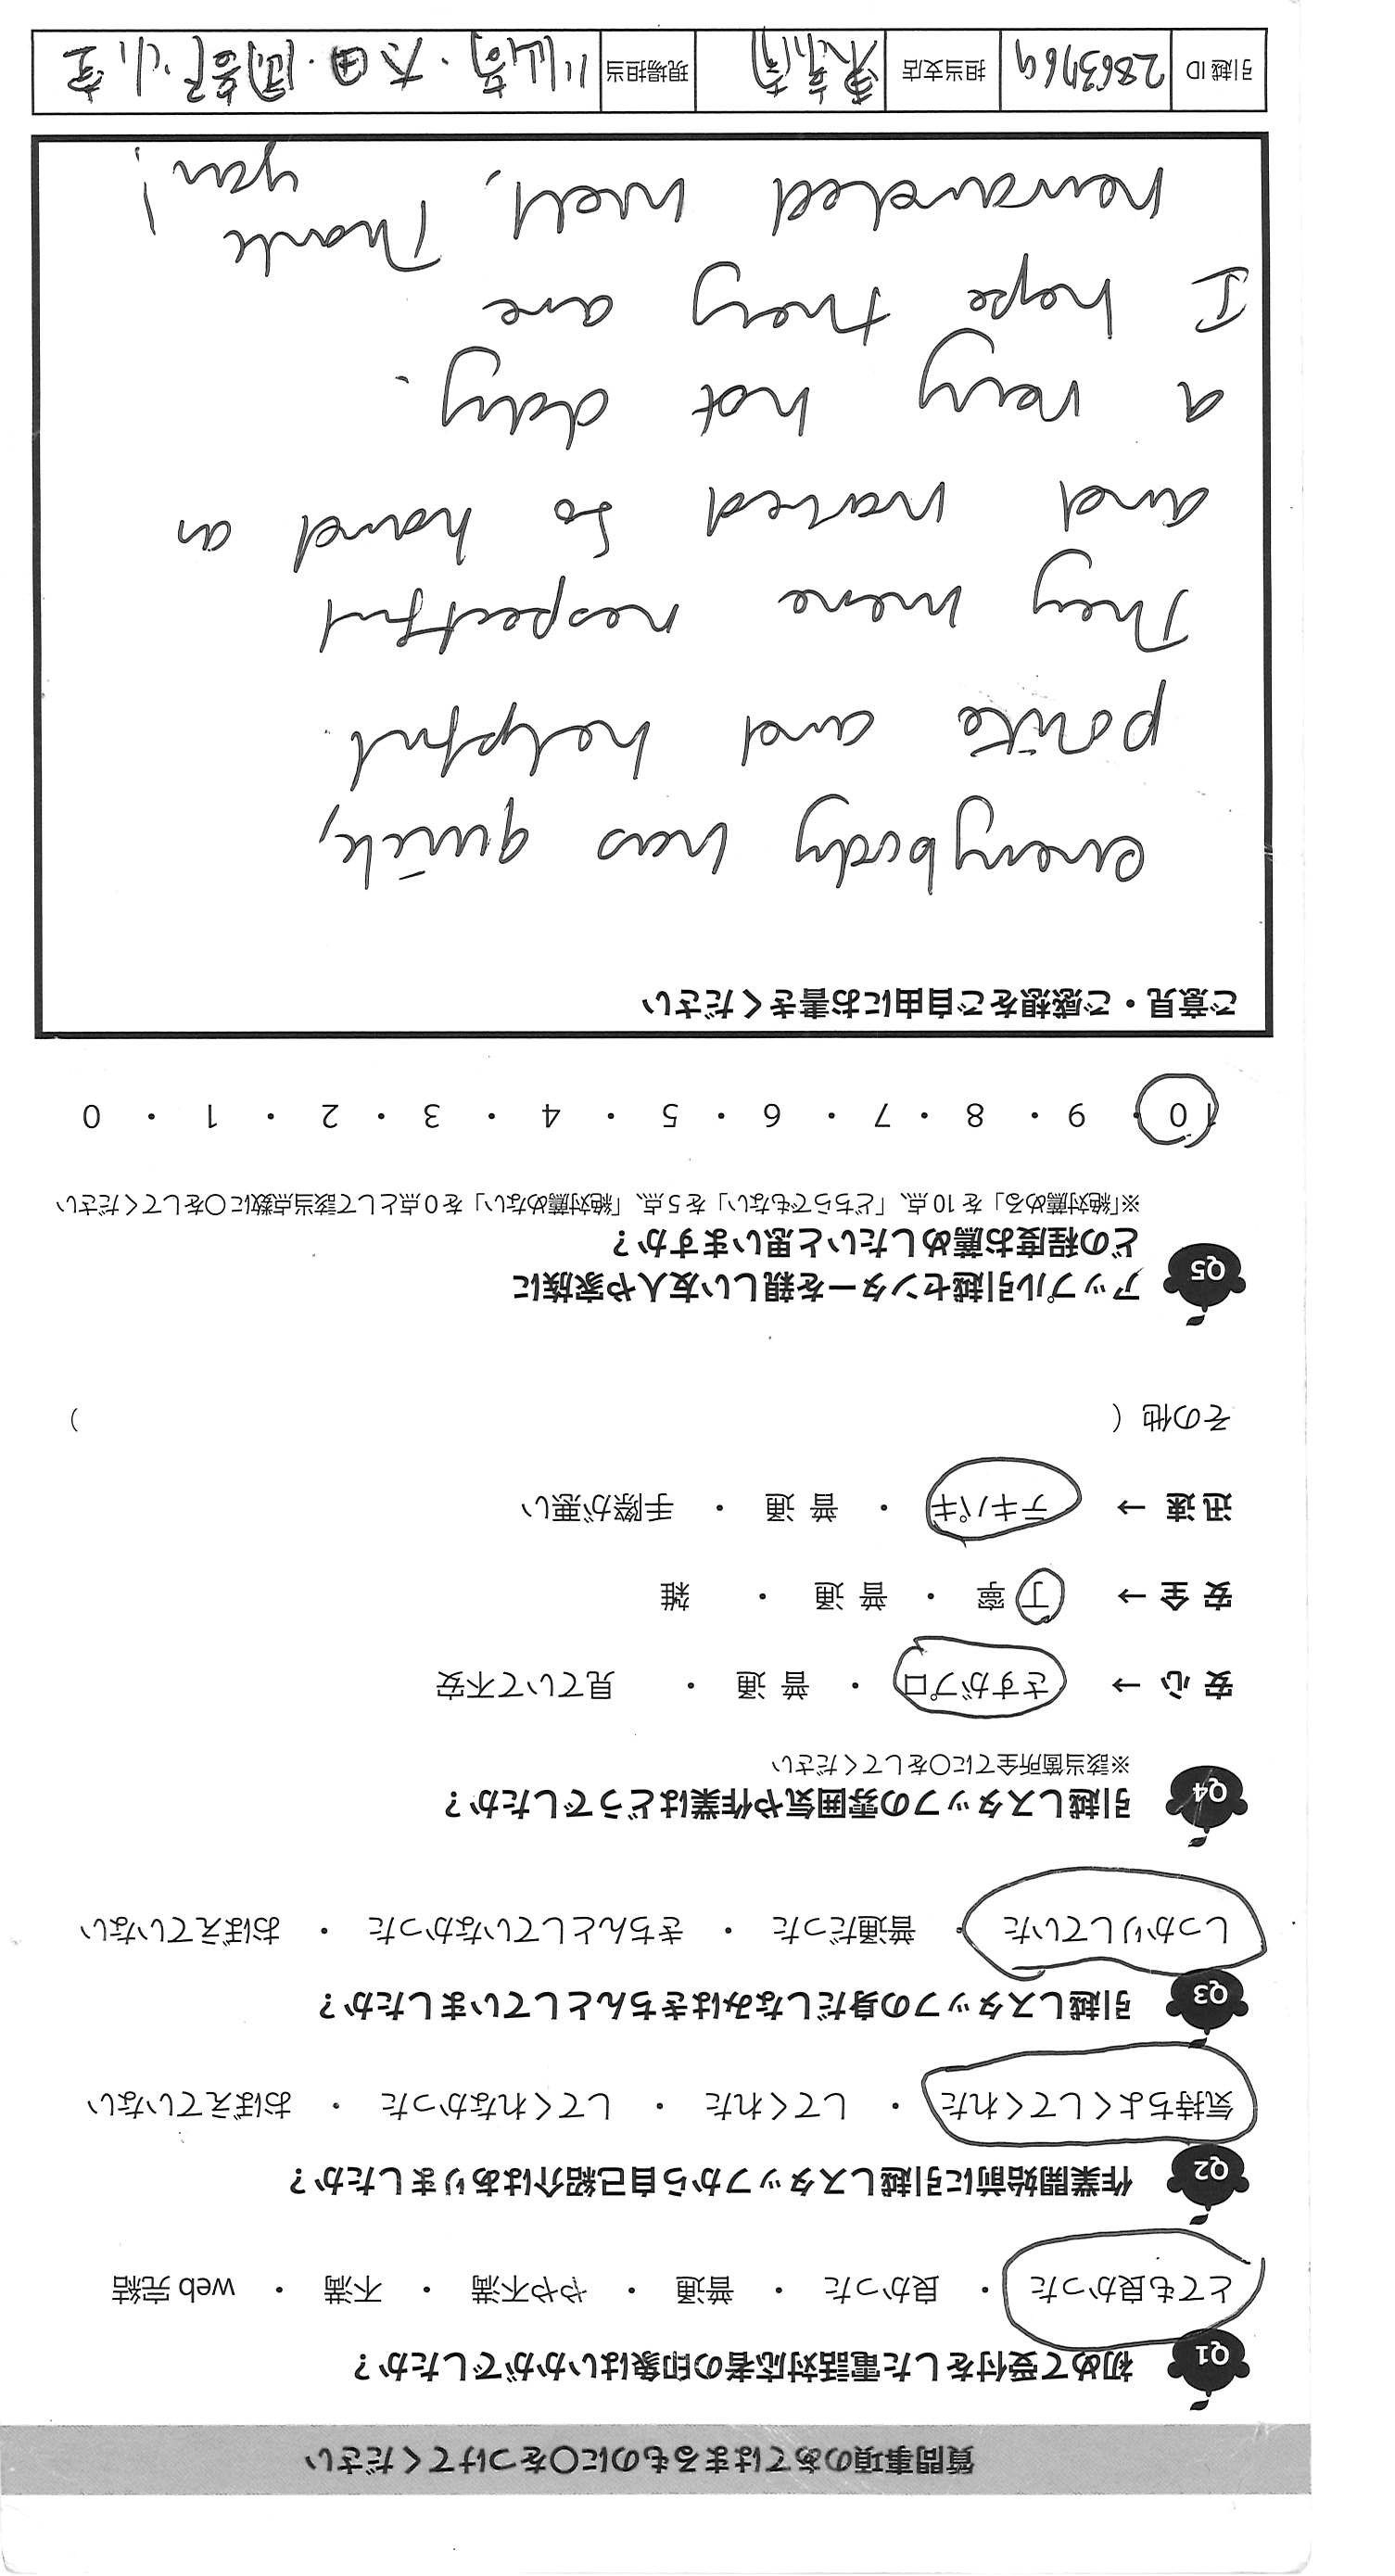 質問事項のあてはまるものに〇をつけてください
Q1 初めて受付をした電話対応者の印象はいかがでしたか？
とても良かった ・ 良かった ・ 普通 ・ やや不満 ・ 不満 ・ web 完結
Q2 作業開始前に引越しスタッフから自己紹介はありましたか？
気持ちよくしてくれた ・ してくれた ・ してくれなかった ・ おぼえていない
Q3 引越しスタッフの身だしなみはきちんとしていましたか？
しっかりしていた ・ 普通だった ・ きちんとしていなかった ・ おぼえていない
Q4 引越しスタッフの雰囲気や作業はどうでしたか？
※該当箇所全てに〇をしてください
安 心 → さすがプロ ・ 普 通 ・ 見ていて不安
安 全 → 丁 寧 ・ 普 通 ・ 雑
迅 速 → テキパキ ・ 普 通 ・ 手際が悪い
その他 ( )
Q5 アップル引越センターを親しい友人や家族に
どの程度お薦めしたいと思いますか？
※「絶対薦める」を 10 点、「どちらでもない」を 5 点、「絶対薦めない」を 0 点として該当点数に〇をしてください
10 ・ 9 ・ 8 ・ 7 ・ 6 ・ 5 ・ 4 ・ 3 ・ 2 ・ 1 ・ 0
ご意見・ご感想をご自由にお書きください
everybody was quick,
polite and helpful.
They were respectful
and worked so hard on
a very hot day.
I hope they are
rewarded well, Thank you!
引越 ID 2863769 担当支店 東京南 現場担当 川崎・太田・阿部・小室